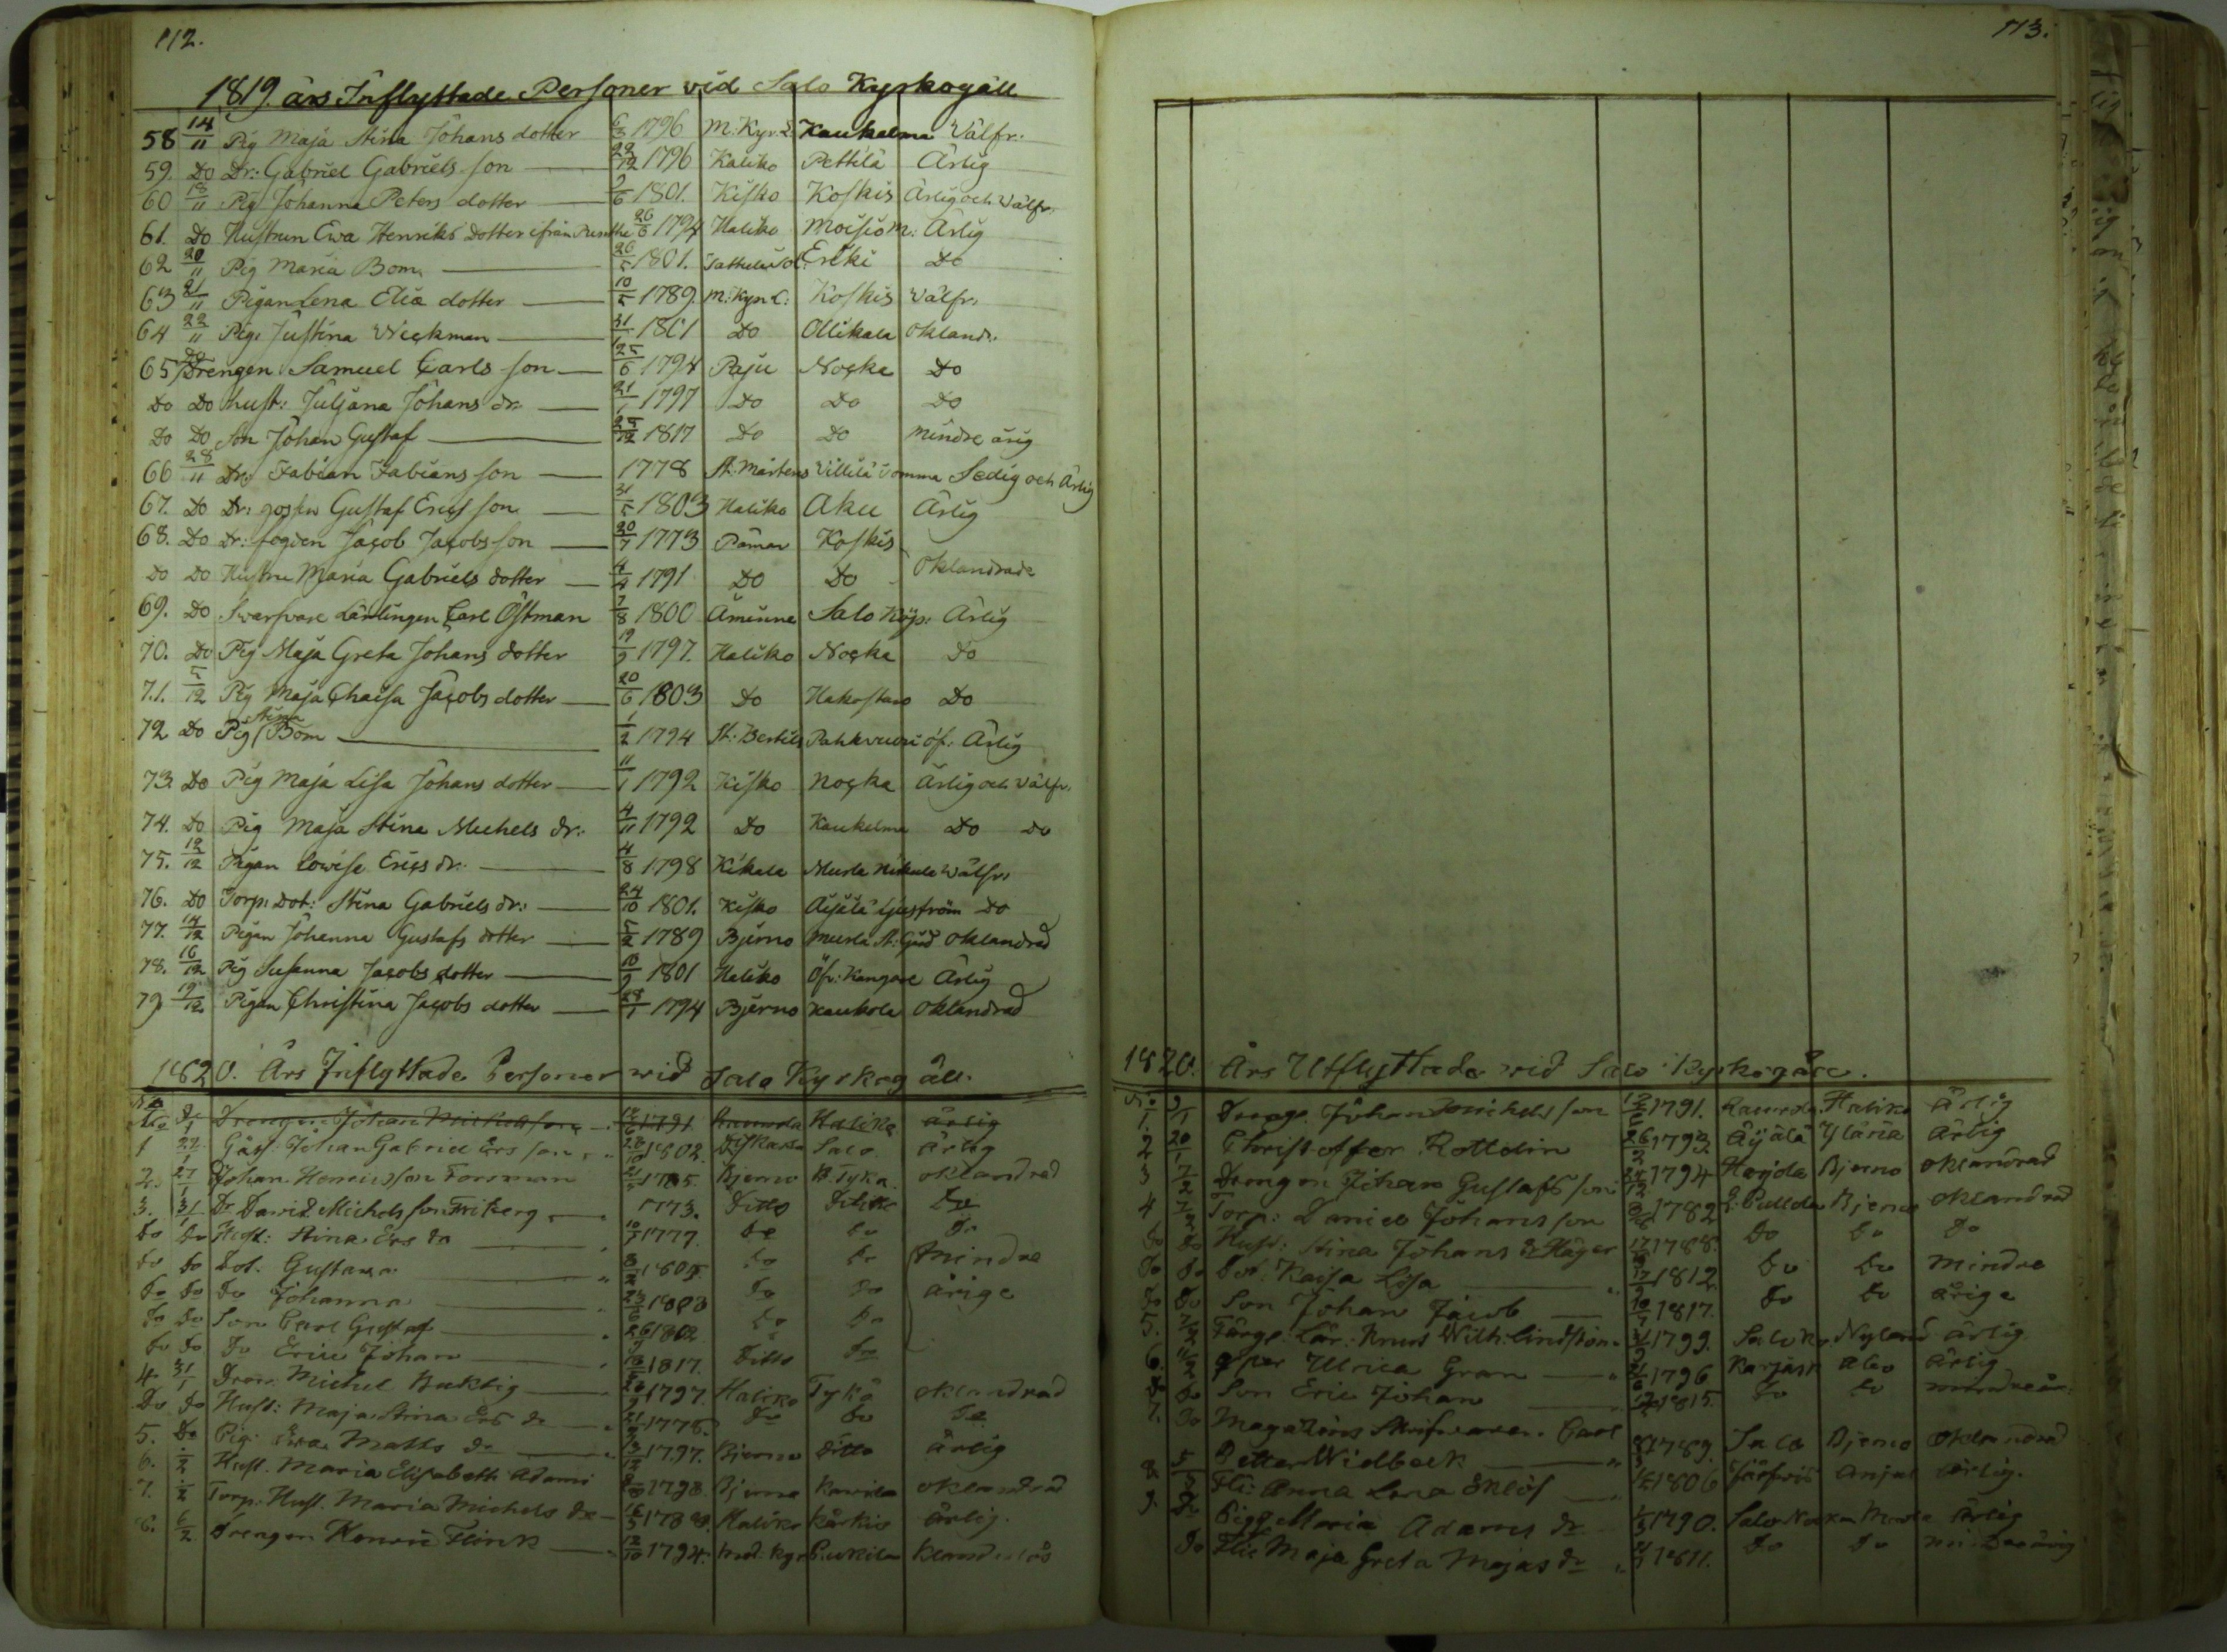 112.
1819. års Inflyttade Personer vid Salo Kyrkogäll
58 14/11 Pig Maja Stina Johans dotter 6/3 1796 M: Kyr: L: Kaukelma Välfr:
59. Do Dr: Gabriel Gabriels son 22/12 1796 Haliko Pettilä Ärlig
60 18/11 Pig Johanna Peters dotter 9/6 1801. Kisko Koskis Ärlig och Välfr.
61. Do Hustrun Ewa Henriks dotter ifrån 1794 Haliko Moisio M: Ärlig
62 20/11 Pig Maria Bom 26/5 1801. Erики Do
63 21/11 Pigan Lena Eliæ dotter 10/5 1789. M: Kyr L: Koskis Välfr.
64 22/11 Pig: Justina Wickman 31/1 1801 Do Ollikala Oklandr.
65 Do Drengen Samuel Carls son 25/6 1794 Paju Nocka Do
Do Do hust: Juljana Johans dr: 21/1 1797 Do Do Do
Do Do Son Johan Gustaf 25/12 1817 Do Do mindre årig
66 28/11 Dr: Fabian Fabians son 1778 St: Mårtens Villilä Sedig och Ärlig
67. Do Dr: gossen Gustaf Erics son 31/5 1803 Haliko Aku Ärlig
68. Do Dr: fogden Jacob Jacobs son 20/7 1773 Pämar Koskis
Do Do Hustru Maria Gabriels dotter 4/4 1791 Do Do Oklandrade
69. Do Swarfware Lärlingen Carl Östman 7/8 1800 Åminne Salo Köp: Ärlig
70. Do Pig Maja Greta Johans dotter 19/9 1797. Haliko Nocka Do
71. 5/12 Pig Maja Chaisa Jacobs dotter 20/6 1803 Do Hakostaro Do
72 Do Pig Stina Bom 1/2 1794 St: Bertils Pahkvuori öf: Ärlig
73 Do Pig Maja Lisa Johans dotter 11/1 1792 Kisko Nocka Ärlig och Välfr.
74. Do Pig Maja Stina Michels dr: 4/11 1792 Do Kaukelma Do Do
75. 12/12 Pigan Lowisa Erics dr: 4/8 1798 Kikala Murla Nikula Wälfr:
76. Do Torp: Dot: Stina Gabriels dr: 24/10 1801. Kisko Äijälä Ljuström Do
77. 14/12 Pigan Johanna Gustafs dotter 5/2 1789 Bjerno Murla St: Gård Oklandrad
78. 16/12 Pig Susanna Jacobs dotter 10/9 1801 Haliko Öfr: Kangare Ärlig
79 19/12 Pigan Christina Jacobs dotter 28/1 1794 Bjerno Kaukola Oklandrad
1820. Års Inflyttade Personer wid Salo Kyrkogäll.
Drengen Johan Michelsson 1791 Raumda Haliko ärlig
1 22/1 Gäst: Johan Gabriel Ers son 1802. Salo ärlig
2. 27/1 Johan Henricsson Forsman 1785. Bjerno B: Tyka oklandrad
3. 31/1 Dr David Michels son Friberg 1773. Ditto Ditto Do
Do Do Hust: Stina Ers dr 10/7 1777. Do Do Do
Do Do Dot: Gustava 8/2 1805. Do Do Mindre
Do Do Do Johanna 23/6 Do Do årige
Do Do Son Carl Gustaf Do Do
Do Do Do Eric Johan 1817. Ditto Do
4. 31/1 Dron. Michel Buktig 1797. Haliko Tykö oklandrad
Do Do Hust: Maja Stina Ers dr 1778. Do Do Do
5. Do Pig: Ewa Matts dr 13/12 1797. Bjerno Ditto ärlig
6. Hust. Maria Elisabeth Adams 1798. Bjerno oklandrad
7. Torp: Hust. Maria Michels dr Haliko Kärkis ärlig.
8. 6/2 Drengen Henric Flink 12/10 1794. Klanderlös
113.
1820. Års Utflyttade wid Salo Kyrkogäll.
1. 9/1 Drenge. Johan Michels son 1791. Raumda Haliko ärlig
2 20/1 Christoffer Rottelin 26/2 1793. Äijälä Yläriä ärlig
3 7/2 Drengen Johan Gustafs son 24/12 1794 Bjerno oklandrad
4 7/2 Torp: Daniel Johansson 1782 Bjerno oklandrad
Do Do Hust: Stina Johans dr Häger 1788. Do Do Do
Do Do Dot: Kaisa Lisa 17/9 1812 Do Do mindre
Do Do Son Johan Jacob 10/7 1817. Do Do årige
5. Färge. Lär: Knut Wilh: Lindström 1799. Salo Nyland ärlig
6. 11/2 Ulrica Gran 1796 Karjask Abo ärlig
Do Do Son Eric Johan 1815. Do Do
7. Do Magazins Skrifvaren Carl
Petter Widbeck 1789. Salo Bjerno oklandrad
8. Fli: Anna Lena Eklöf 1806 Anjal ärlig.
9. Do Piga Maria Adams dr 1790. Salo ärlig
Do Flic Maja Greta Majas dr 1811. Do Do